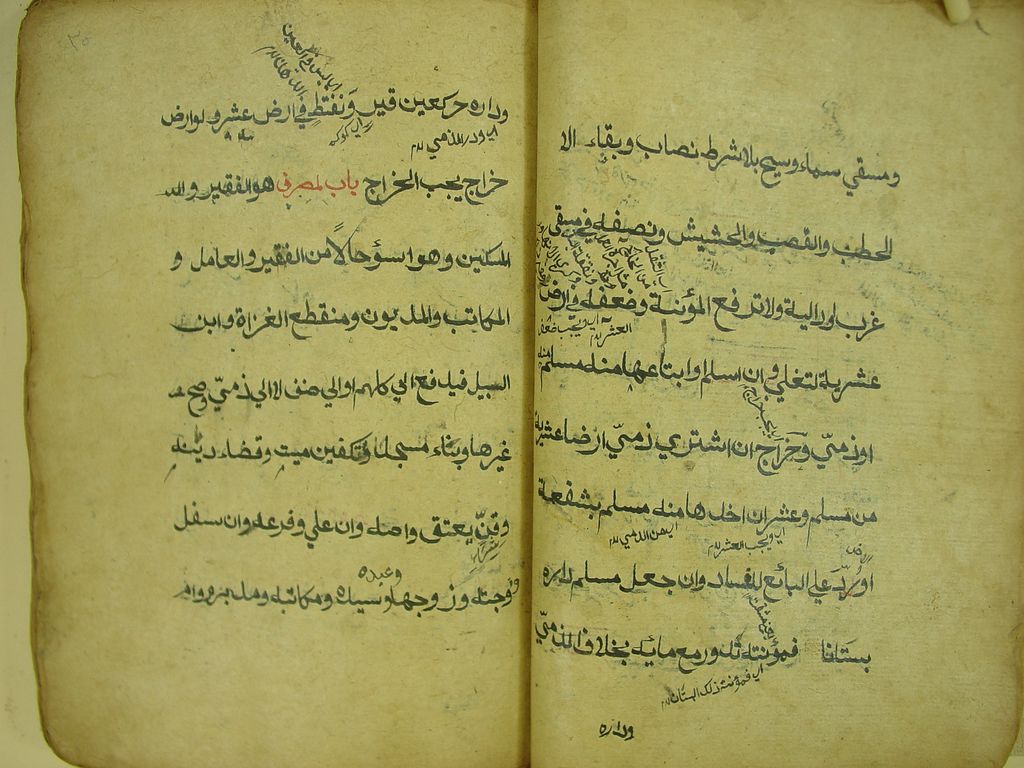 ومسقي سماء وسيح بلا شرط نصاب وبقاء الا
الحطب والقصب والحشيش ونصفه في مسقي
غرب او دالية ولا ترفع المؤنة وضعفه في ارض
العشر اي ويجب ضعف
عشرية لتغلبي وان اسلم او ابتاعها منه مسلم
او ذمي وخراج ان اشتري ذمي ارضا عشرية
اي يجب خراج
من مسلم وعشر ان اخذها منه مسلم بشفعة
اي ويجب العشر
اي من الذمي
او رد علي البائع للفساد وان جعل مسلم داره
بستانا فمؤنته تدور مع مائه بخلاف الذمي
اي فمؤنة ذلك البستان
وداره
وداره حر كعين قير ونفط في ارض عشر ولو ارض
اي ودار الذمي
خراج يجب الخراج باب المصرف هو الفقير و
المسكين وهو اسؤ حالا من الفقير والعامل و
المكاتب والمديون ومنقطع الغزاة وابن
السبيل فيدفع الي كلهم او الي صنف لا الي ذمي وصح
غيرها وبناء مسجد وتكفين ميت وقضاء دينه
وقن يعتق واصله وان علي وفرعه وان سفل
وعبده
وزوجته وزوجها وسيده ومكاتبه ومدبره وام